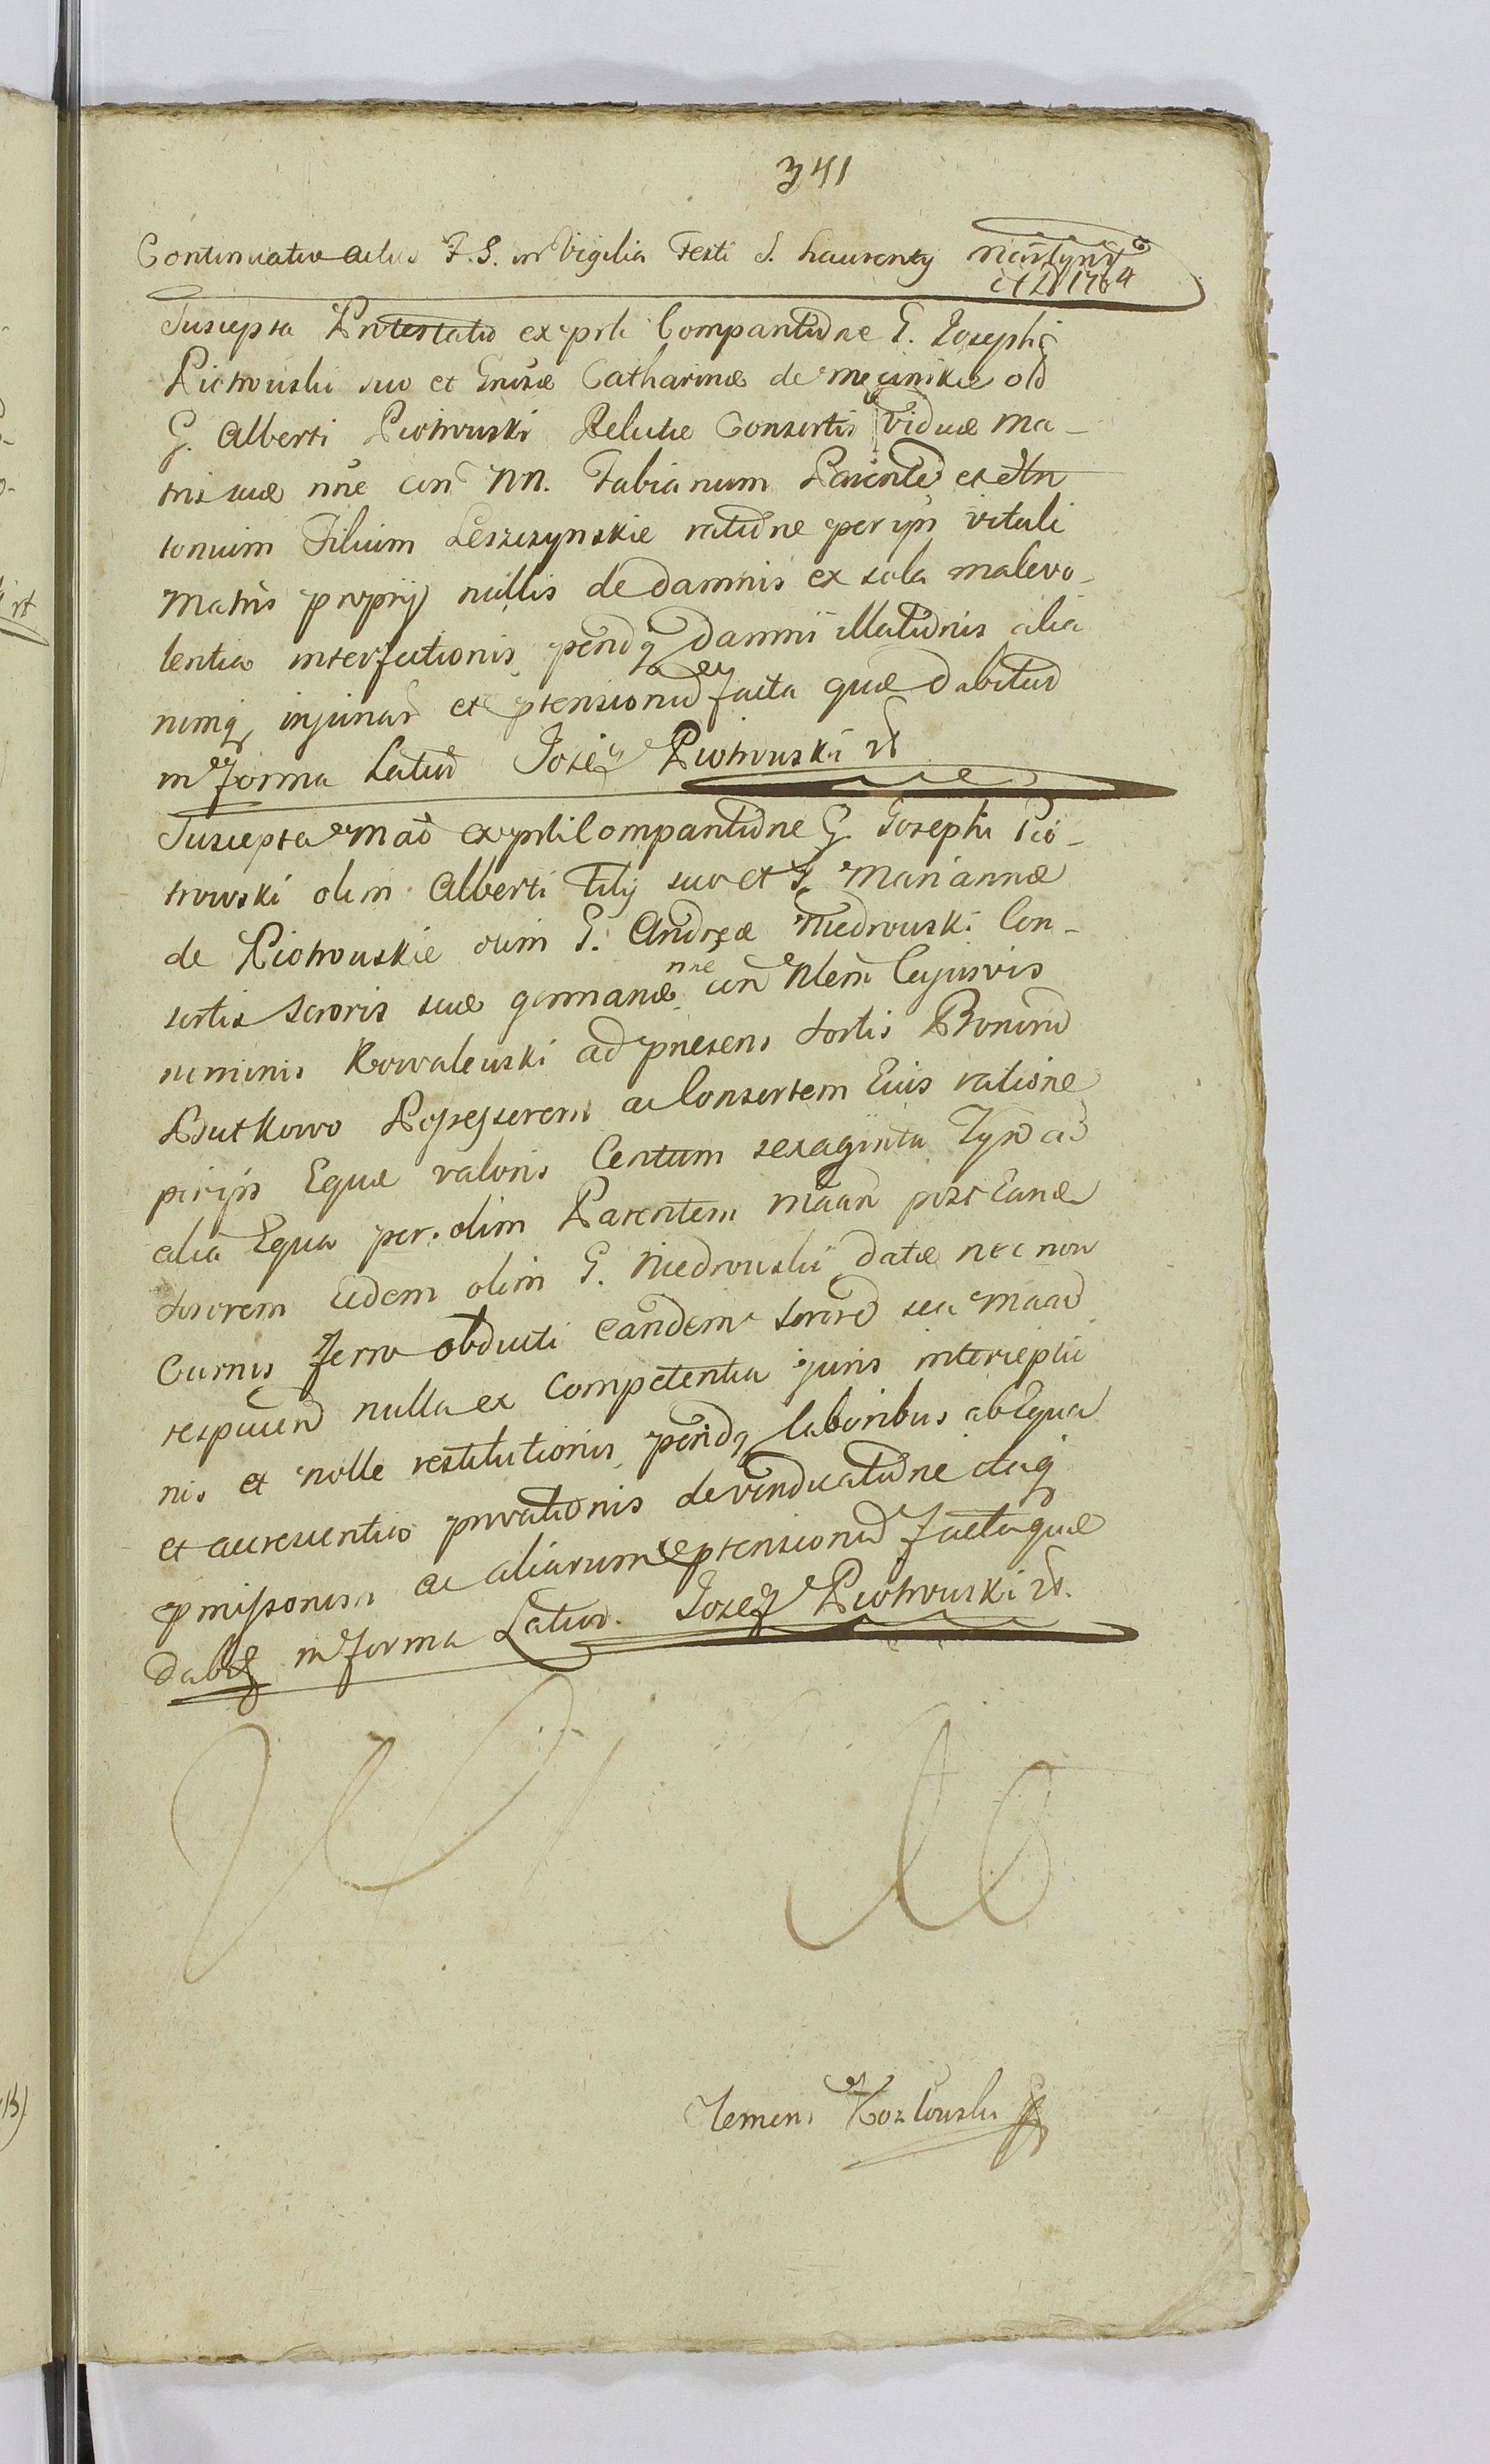 341
Continuatio Actus F. S. in Vigilia Festi S. Laurentij Martyris
A D 1764
Suscepta Protestatio ex prsti Compantione G. Josephi
Piotrowski suo et Grosae Catharinae de Męcinskie old
G. Alberti Piotrowski Relictae Consortis viduae Ma-
tris suae nne con NN. Fabianum Parentē et An
tonium Filium Leszczynskie ratione per ips vituli
Matris proprij nullis de damnis ex sola malevo-
lentia interfectionis pendq damni illationis alia
rumq injuriar et ptensionū facta quae dabitur
in forma Latiō Jozef Piotrowski
Suscepta Mao ex prsti Compantione G. Josephi Pio-
trowski olim Alberti Filij suo et G. Mariannae
de Piotrowskie olim G. Andreae Niedrowski Con-
sortis Sororis suae germanae nne con Nlem Cujusvis
nominis Kowalewski ad presens Sortis Bonorū
Butkowo Possessorem ac Consortem Eius ratione
per ips Equae valoris Centum sexaginta Tynf ac
alia Equa per olim Parentem Maan post Eand
Sororem Eidem olim G. Niedrowski datae nec non
Currus ferro obducti eandem Sororē seu Maan
respicien nulla ex Competentia juris interceptio
nis et nolle restitutionis pendq laboribus ab Equa
et accrescentiis privationis de vendicatione etaq
pmissorum ac aliarum ptensionū facta quae
dabit in forma Latiō. Jozef Piotrowski
Clemens Kozlowski